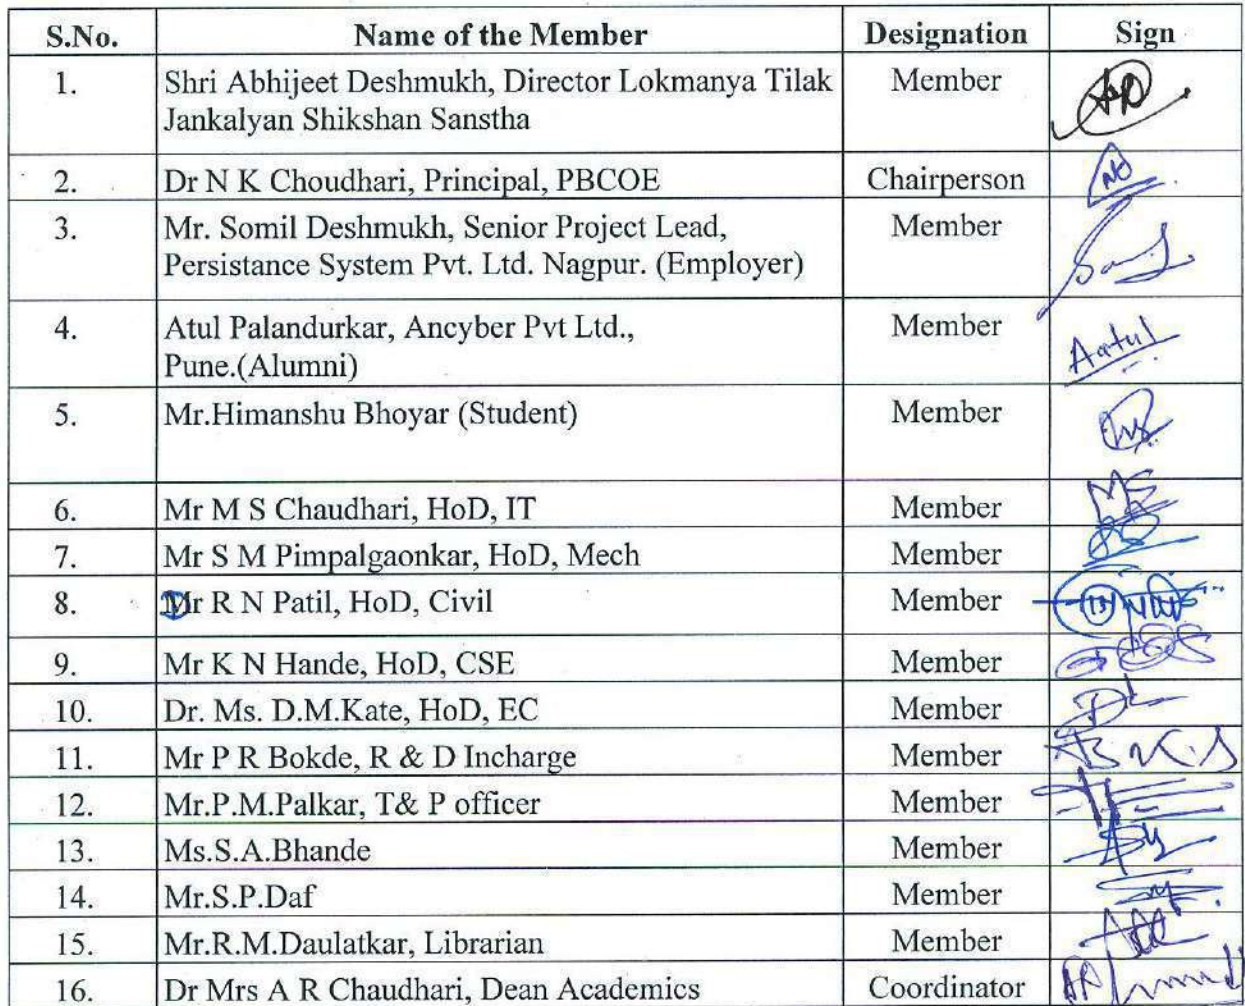 S.No. Name of the Member Designation Sign
1. Shri Abhijeet Deshmukh, Director Lokmanya Tilak Member
Jankalyan Shikshan Sanstha
2. Dr N K Choudhari, Principal, PBCOE Chairperson
3. Mr. Somil Deshmukh, Senior Project Lead, Member
Persistance System Pvt. Ltd. Nagpur. (Employer)
4. Atul Palandurkar, Ancyber Pvt Ltd., Member
Pune.(Alumni) Aatul
5. Mr.Himanshu Bhoyar (Student) Member
6. Mr M S Chaudhari, HoD, IT Member
7. Mr S M Pimpalgaonkar, HoD, Mech Member
8. Mr R N Patil, HoD, Civil Member
9. Mr K N Hande, HoD, CSE Member
10. Dr. Ms. D.M.Kate, HoD, EC Member
11. Mr P R Bokde, R & D Incharge Member
12. Mr.P.M.Palkar, T& P officer Member
13. Ms.S.A.Bhande Member
14. Mr.S.P.Daf Member
15. Mr.R.M.Daulatkar, Librarian Member
16. Dr Mrs A R Chaudhari, Dean Academics Coordinator